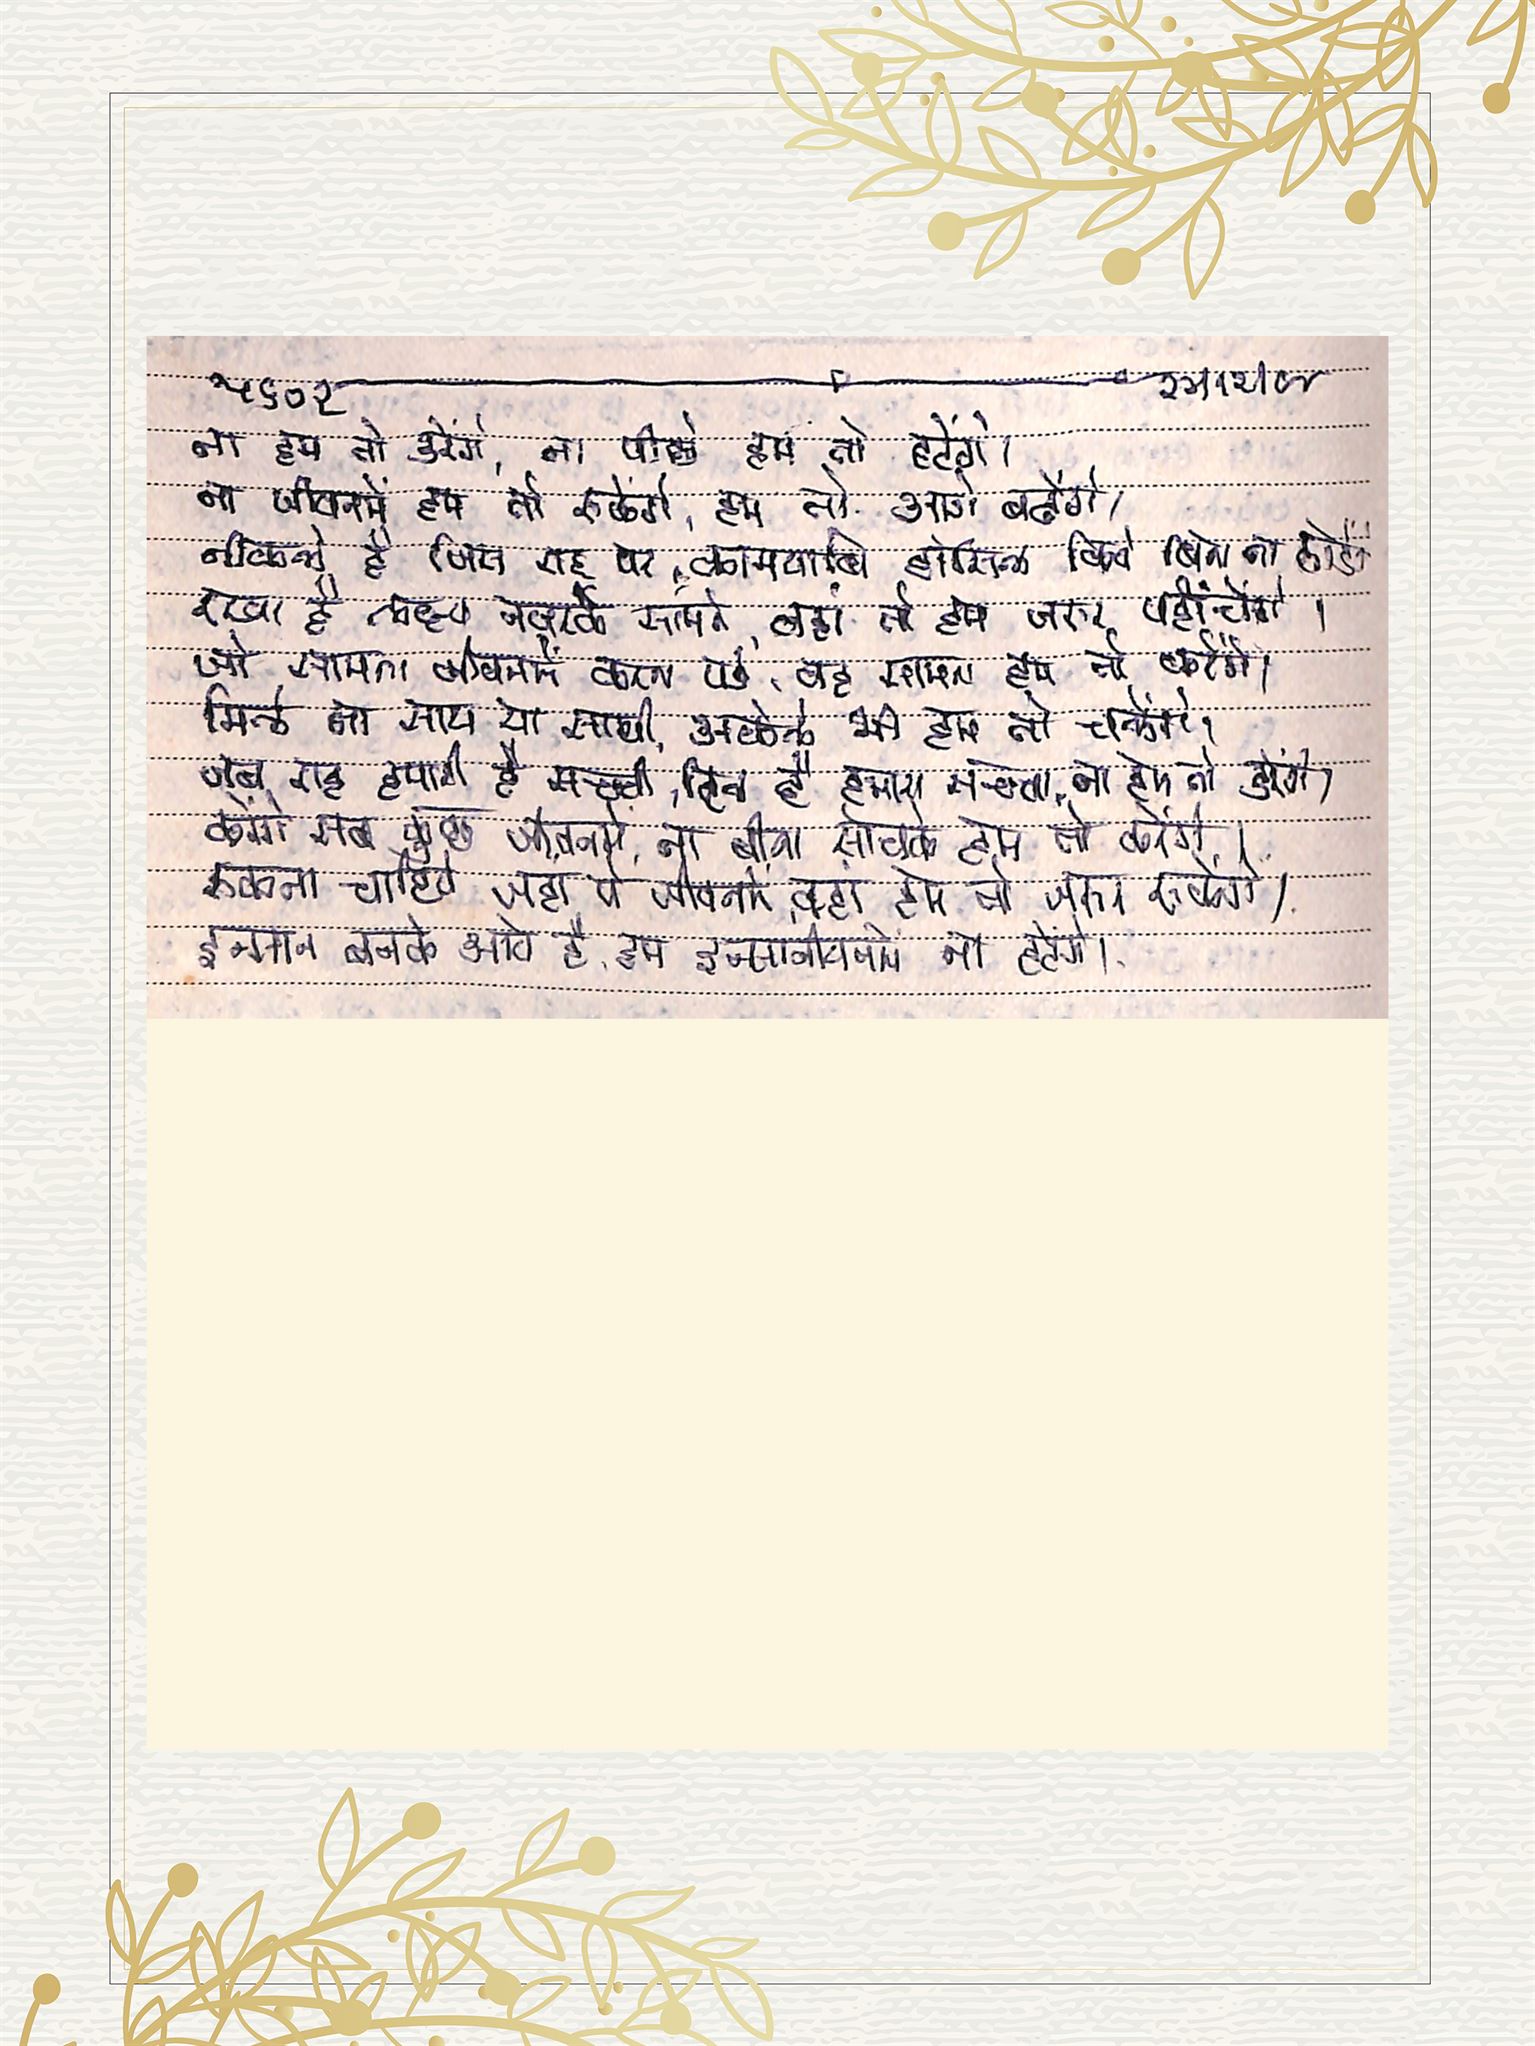 ना हम तो डरेंगे, ना पीछे हम तो हटेंगे।
ना जीवनमें हम तो रुकेंगे, हम तो आगे बढ़ेंगे।
नीकले है जिस राह पर, कामयाबि हांसिल किये बिना ना छोड़ेंगे
रखा है लक्ष्य नजरके सामने, वहां तो हम जरूर पहोंचेंगे।
जो सामना जीवनमें करना पडे, वह सामना हम तो करेंगे।
मिले ना साथ या साथी, अकेले भी हम तो चलेंगे।
जब राह हमारी है सच्ची, दिल है हमारा सच्चा, ना हम तो डरेंगे।
करेंगे सब कुछ जीवनमें, ना बीना सोचके हम तो करेंगे।
रुकना चाहिये जहां पे जीवनमें, वहां हम तो जरूर रुकेंगे।
इन्सान बनके आये है, हम इन्सानीयतसे ना हटेंगे।